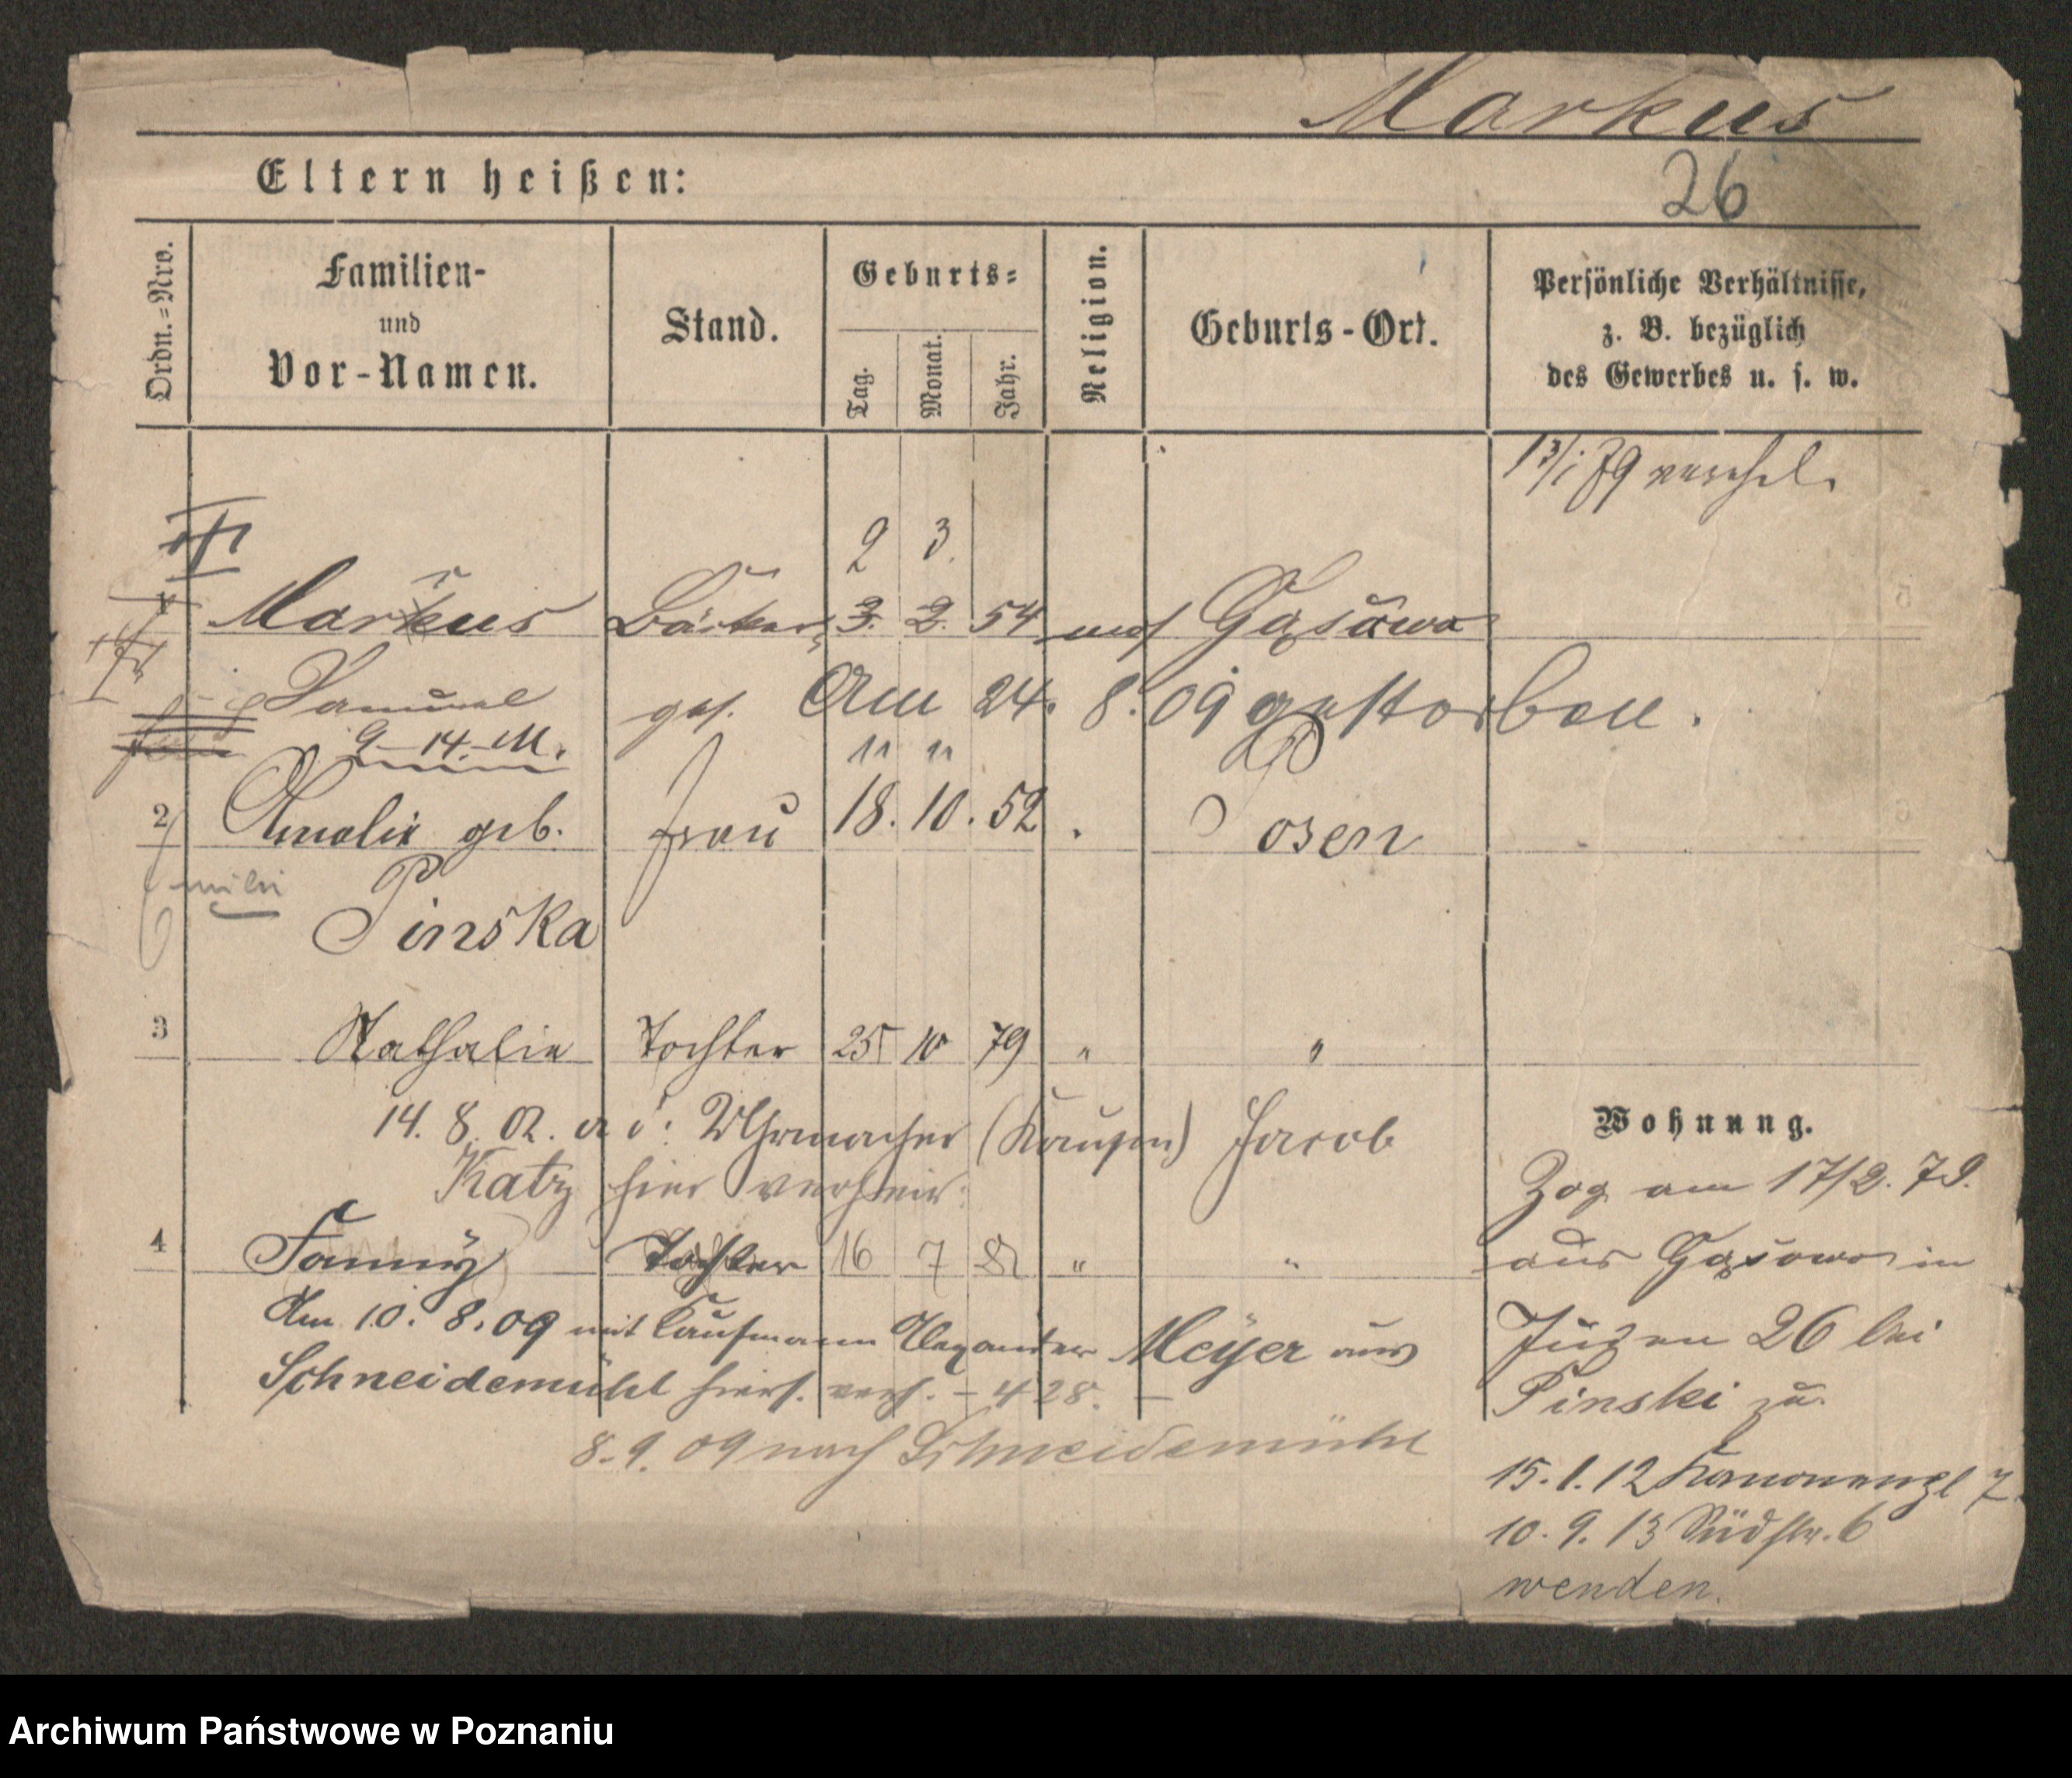 Markus
Eltern heißen:
26
Ordn.=Nro.
Familien-
und
Vor-Namen.
Stand.
Geburts=
Tag.
Monat.
Jahr.
Religion.
Geburts-Ort.
Persönliche Verhältnisse,
z. B. bezüglich
des Gewerbes u. s. w.
13/1 79 verehel.
2 3.
1 Markus Bäcker 3. 2. 54 mos Gąsawa
Samuel gest. Am 24. 8. 09 gestorben.
9-14-M. 11 11
2 Amalie geb. Frau 18. 10. 52 Posen
Pinska
3 Nathalie Tochter 25 10 79 " "
14. 8. 02. a. d. Uhrmacher (Kaufm) Jacob
Katz hier verheir.
4 Fanny Tochter 16 7 81 " "
Am 10. 8. 09 mit Kaufmann Alexander Meÿer aus
Schneidemühl hiers. verh. - 428. -
8. 9. 09 nach Schneidemühl
Wohnung.
Zog am 17/2. 79.
aus Gąsawa in
Juden 26 bei
Pinski zu.
15. 1. 12 Kanonenpl 7
10. 9. 13 Südstr. 6
wenden.
Archiwum Państwowe w Poznaniu